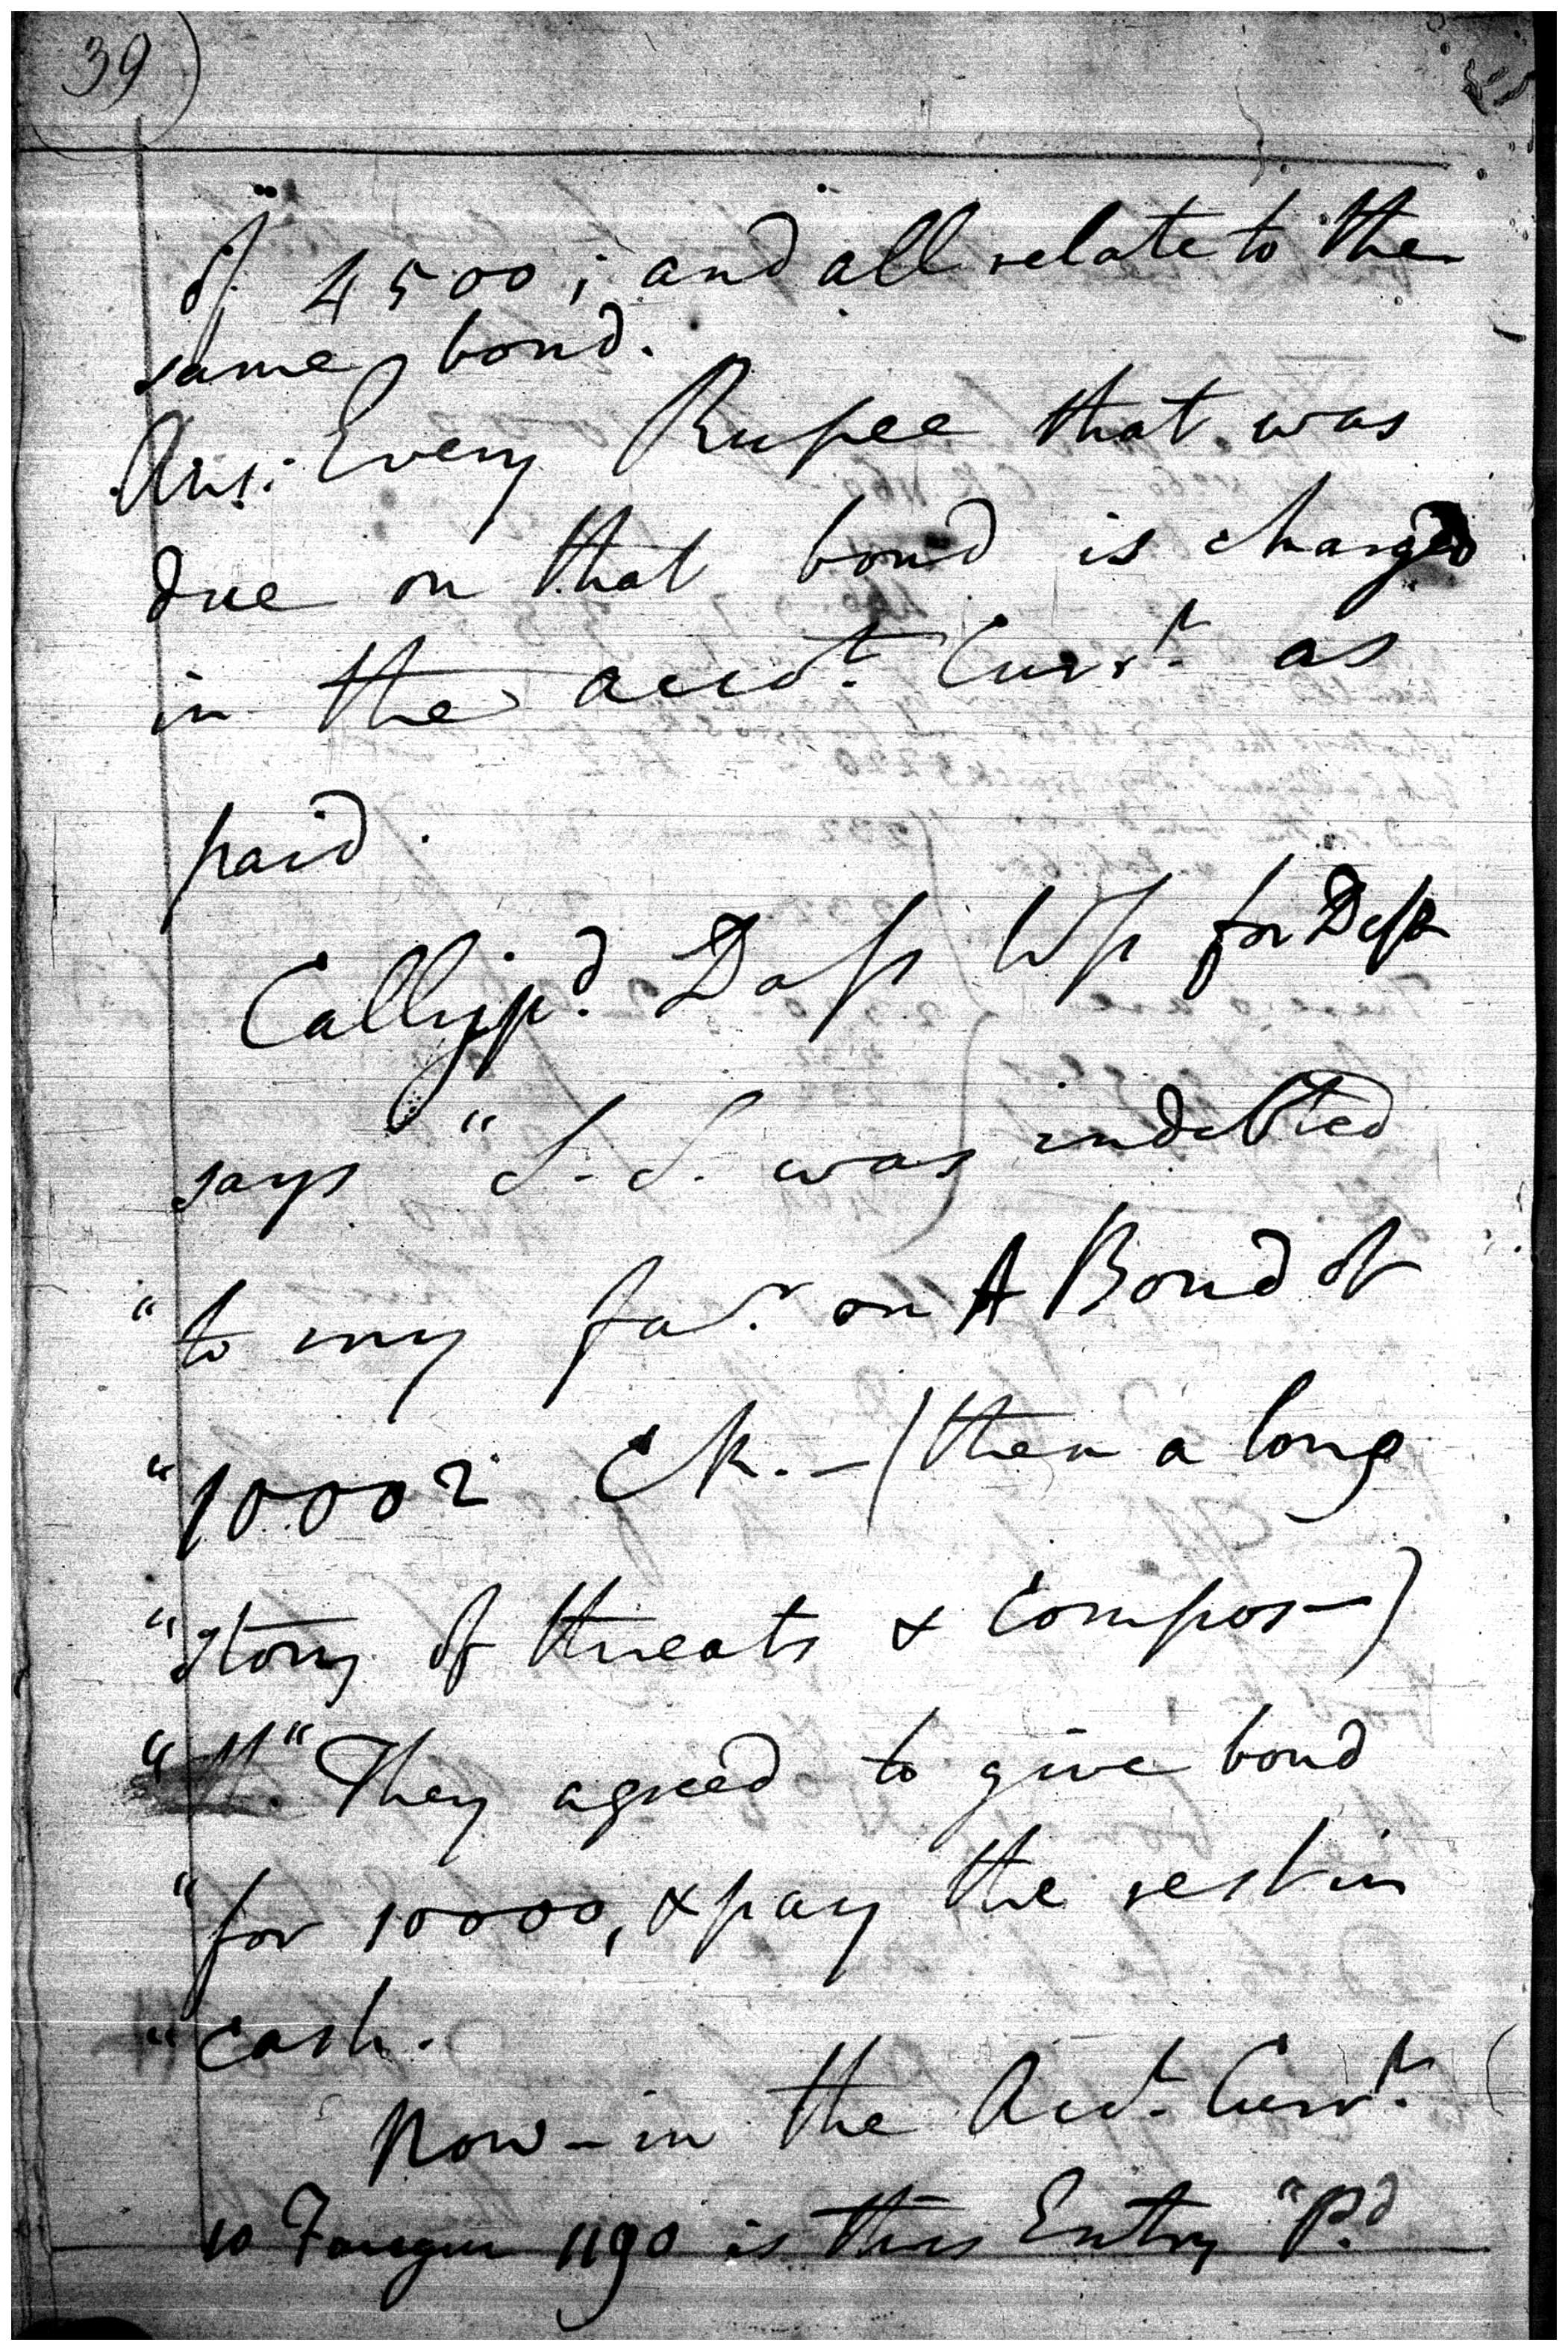 39)
of 4500; and all relate to the
same bond.
Ans: Every Rupee that was
due on that bond is charged
in the accot. Currt. as
paid.
Callypd. Dass Ws for Deft
says "S. S. was indebted
"to my far. on A Bond of
"10002 CR. - (then a long
"story of threats & compos—)
"They agreed to give bond
"for 10000, & pay the rest in
"cash.
Now - in the Acct. Currt.
10 Faugun 1190 is this Entry "Pd